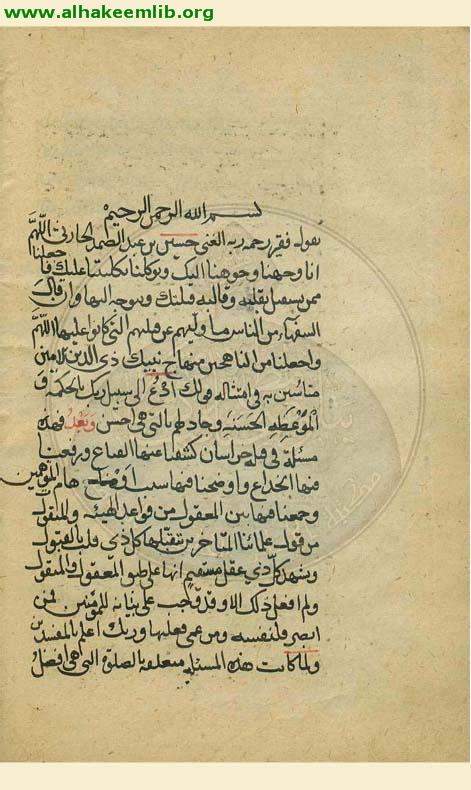 www.alhakeemlib.org
بسم الله الرحمن الرحيم
يقول فقير رحمة ربه الغنى حسين بن عبد الصمد الحارثى اللهم
انا وجهنا وجوهنا اليك وتوكلنا بكليتنا عليك فاجعلنا
ممن يستقبل بقلبه وقالبه قبلتك ويتوجه اليها وان قال
السفهاء من الناس ما وليهم عن قبلتهم التى كانوا عليها اللهم
واجعلنا من الناهجين منهاج نبيك ذى الدين الامين
متاسين به فى امتثاله قولك ادع الى سبيل ربك بالحكمة و
الموعظة الحسنة وجادلهم بالتى هى احسن وبعد فهذه
مسئلة فى قبلة خراسان كشفنا عنها القناع ورفعنا
فيها الخداع واوضحنا فيها سبب اوهام المتوهمين
وجمعنا فيها بين المعقول من قواعد الهيئة والمنقول
من قول علمائنا المتاخرين يتقبلها كل ذى قلب بالقبول
ويشهد كل ذى عقل مستقيم انها على طبق المعقول والمنقول
ولم افعل ذلك الا وقد وجب على بيانه للمؤمنين فمن
ابصر فلنفسه ومن عمى فعليها وربك اعلم بالمفسدين
ولما كانت هذه المسئلة متعلقة بالصلوة التى هى افضل